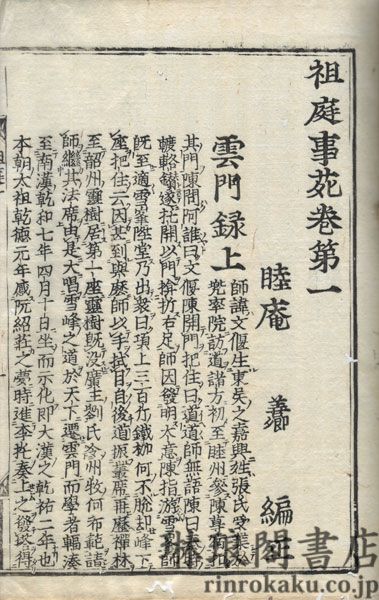 祖庭事苑卷第一
睦庵 編
雲門録上
師諱文偃生東吳之嘉興姓張氏受業於
兜率院訪道諸方初至睦州參陳尊宿扣
其門陳問阿誰曰文偃陳開門把住曰道道師無語陳曰
轢鑽遂托開以門掩折右足師因發明大意陳指游雪峰
既至適雪峯陞堂乃出衆曰項上三百斤鐵枷何不脱却峰下
座把住云因甚到與麽師以手拭目自後道振叢席再歷禪林
至韶州靈樹居第一座靈樹既没廣主劉氏命州牧何希範請
師繼其法席由是大唱雪峰之道於天下遷雲門而學者輻湊
至南漢乾和七年四月十日坐而示化即大漢之乾祐二年也
本朝太祖乾德元年感阮紹莊之夢時進李托奏上之發塔得
琳琅閣書店
rinrokaku.co.jp